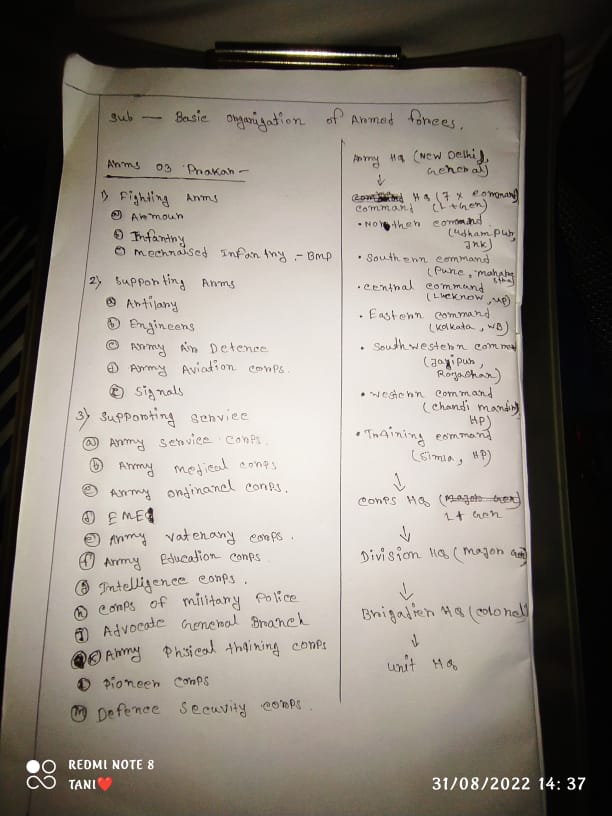 Sub — Basic Organization of Armed forces.
Arms 03 Prakar -
1) Fighting Arms
(a) Armour
(b) Infantry
(c) Mechnaised Infantry - BMP
2) Supporting Arms
(a) Artilary
(b) Engineers
(c) Army Air Detence
(d) Army Aviation corps.
(e) Signals
3) Supporting Service
(a) Army Service corps.
(b) Army medical corps
(c) Army ordinancl corps.
(d) EME
(e) Army vatenary corps.
(f) Army Education corps.
(g) Intelligence corps.
(h) corps of military Police
(j) Advocate General Branch
(k) Army Phsical thraining corps
(l) Pioneer corps
(m) Defence Secuvity corps.
Army HQ (New Delhi,
General)
↓
HQ (7 x command)
command (L+Gen)
• Northen command
(Udhampur,
J&K)
• Southern command
(Pune,
• central command
(Lucknow, UP)
• Eastern command
(kolkata, WB)
• Southwestern comma
(Jayipur,
Rajasthan)
• western command
(chandi mandir,
HP)
• Training command
(Simla, HP)
↓
corps HQ (Major Gen)
Lt Gen
↓
Division HQ (Major Gen)
↓
Brigadier HQ (colonel)
↓
unit HQ
REDMI NOTE 8
TANI❤️
31/08/2022 14:37